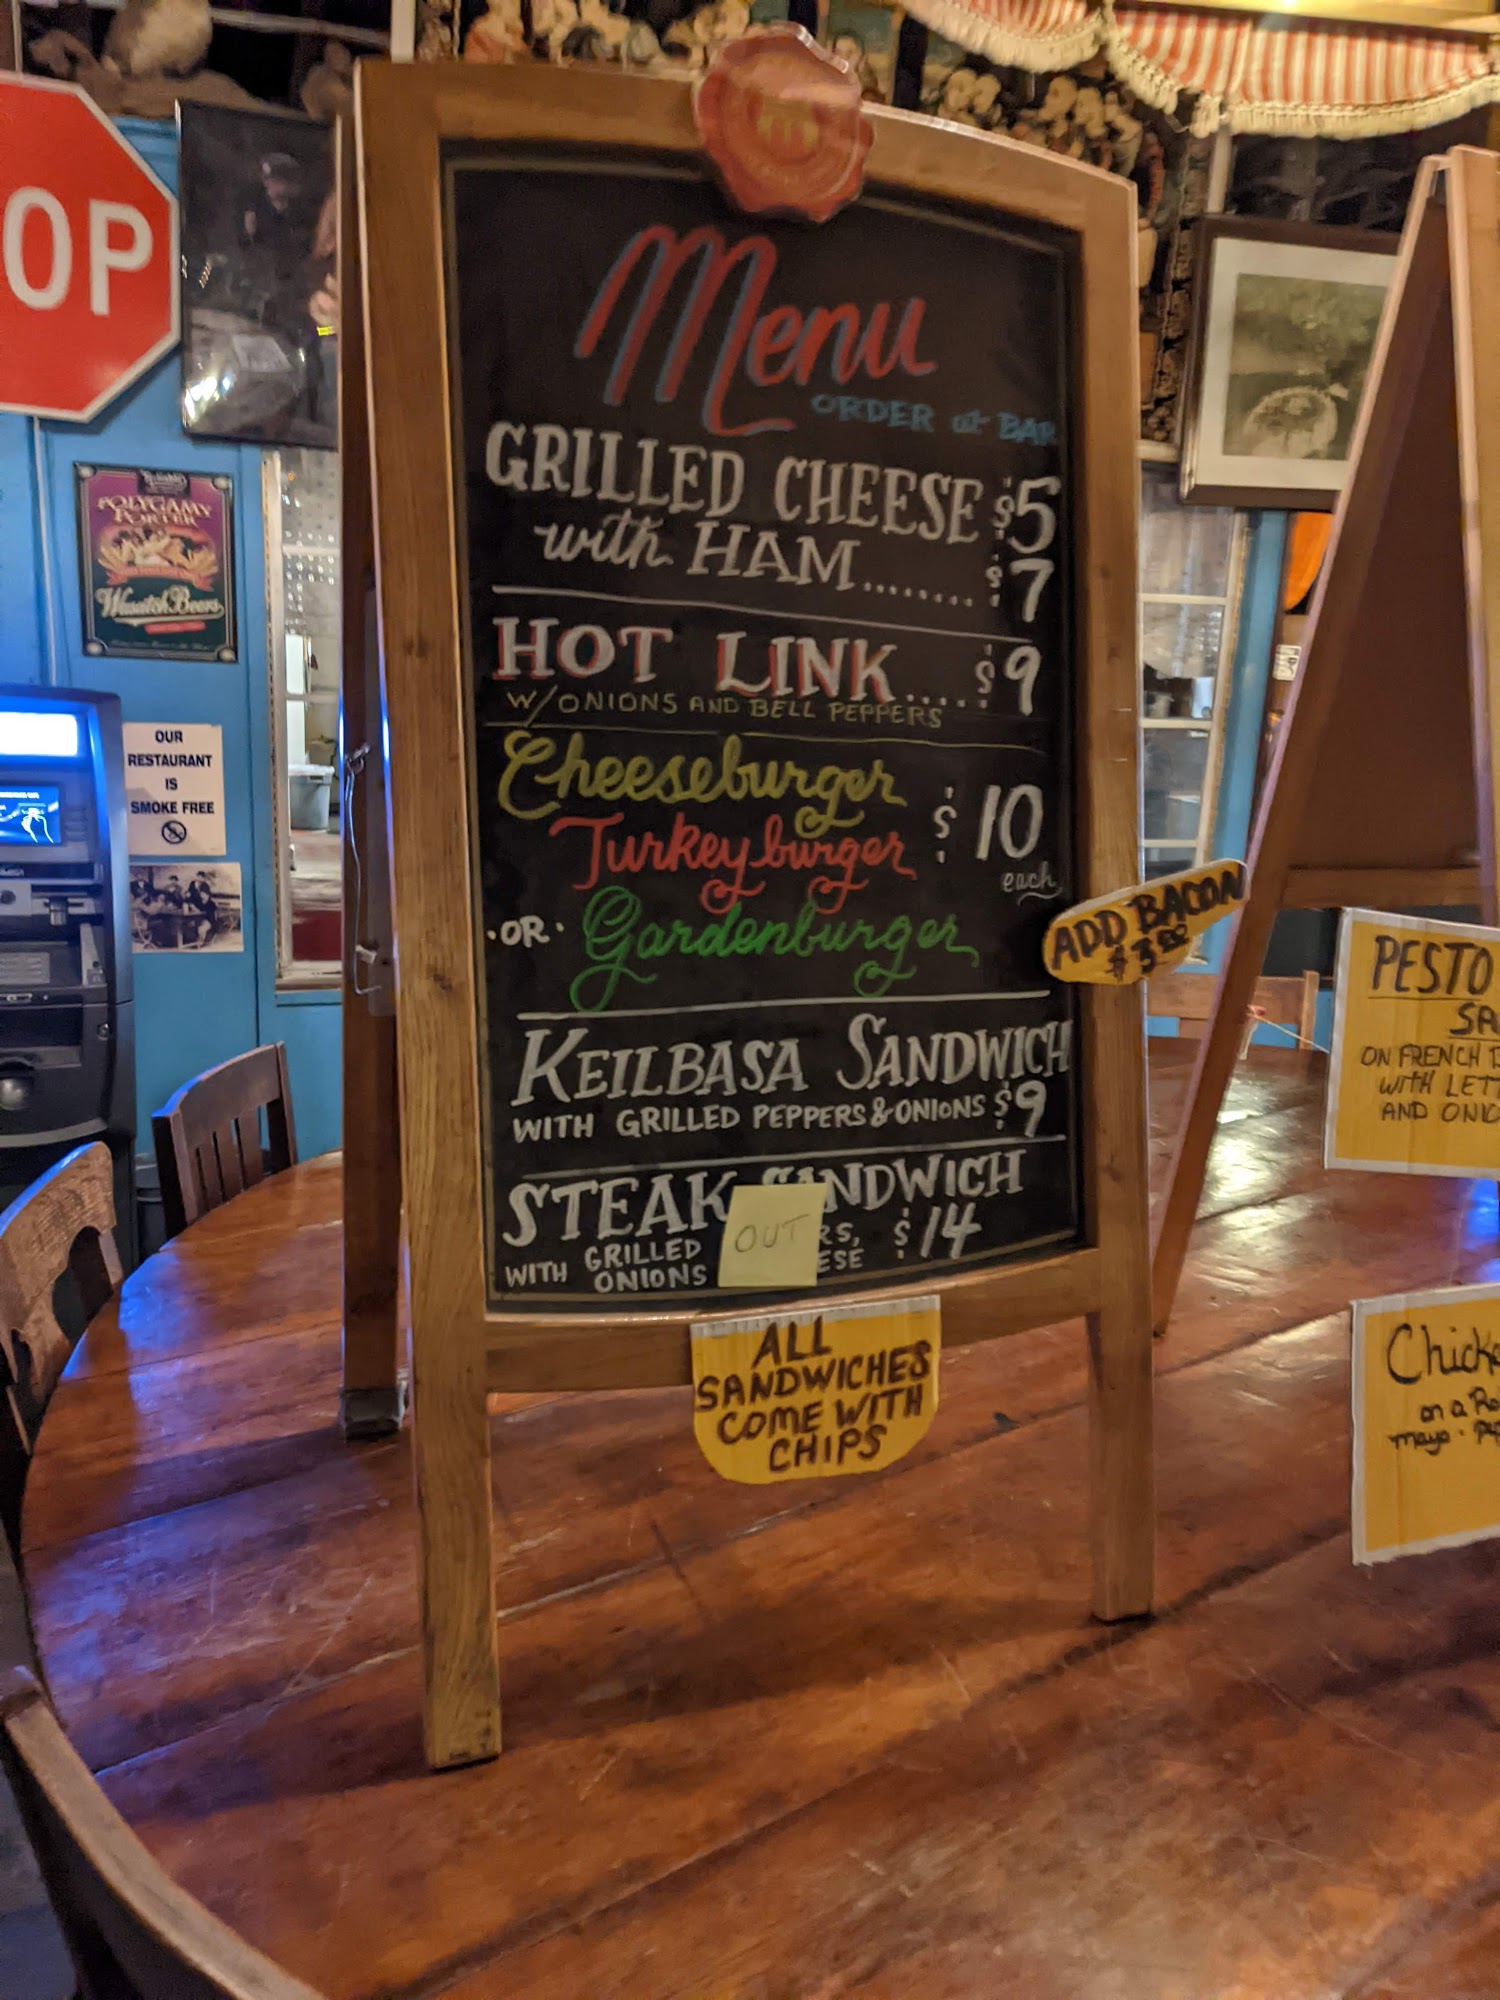 OP
POLYGAMY
PORTER
Wasatch Beers
OUR
RESTAURANT
IS
SMOKE FREE
Menu
ORDER at BAR
GRILLED CHEESE $5
with HAM........ $7
HOT LINK.... $9
W/ONIONS AND BELL PEPPERS
Cheeseburger
Turkeyburger $10
each
·OR· Gardenburger
ADD BACON
$3.00
KEILBASA SANDWICH
WITH GRILLED PEPPERS & ONIONS $9
STEAK SANDWICH
WITH GRILLED RS, $14
ONIONS ESE
OUT
ALL
SANDWICHES
COME WITH
CHIPS
PESTO
SA
ON FRENCH
WITH LETT
AND ONIO
Chicke
on a Ro
mayo